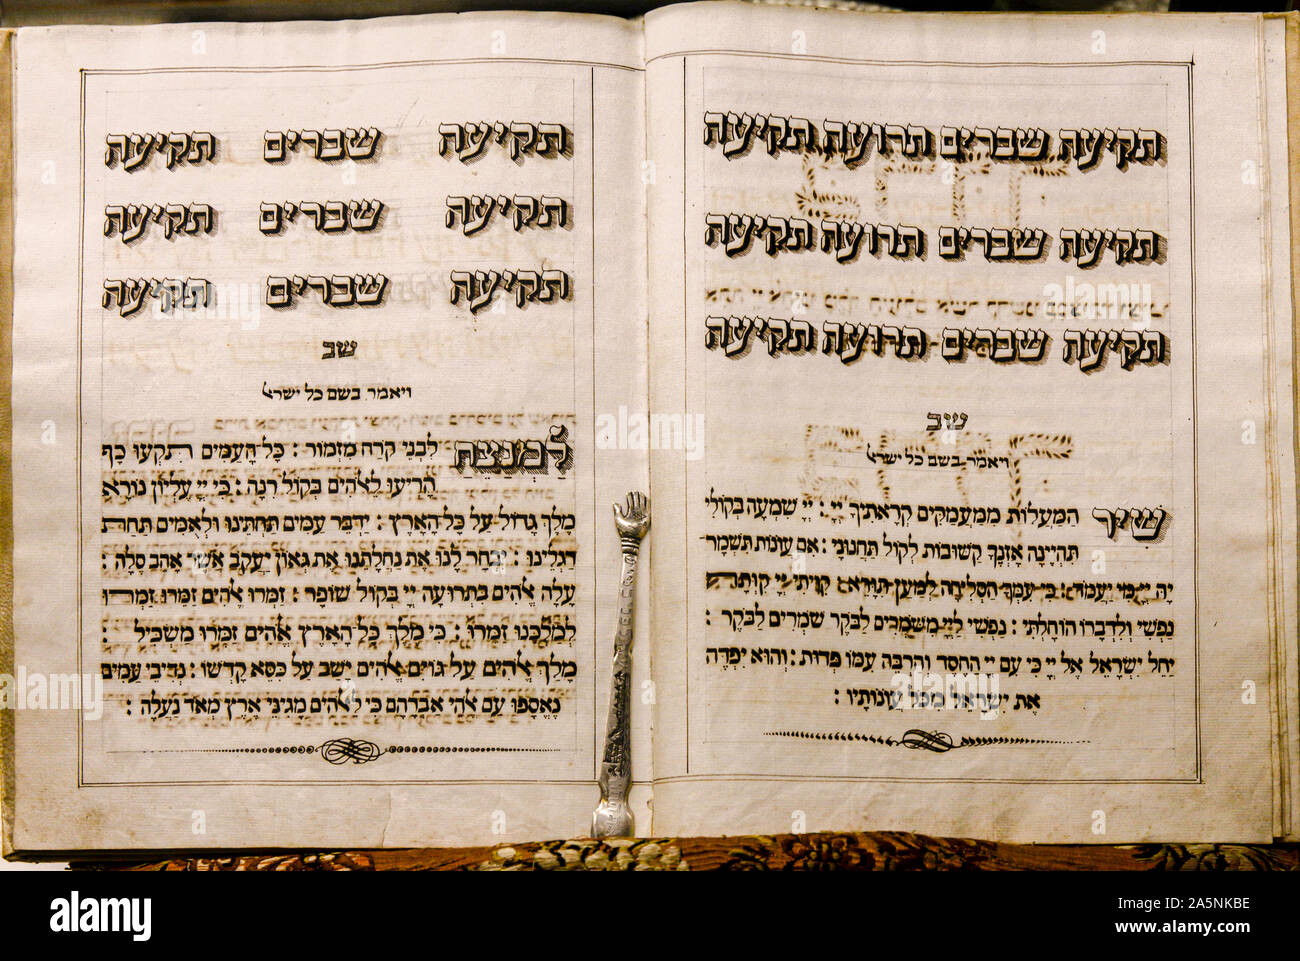 תקיעה שברים תרועה תקיעה
תקיעה שברים תרועה תקיעה
תקיעה שברים תרועה תקיעה
שב
ויאמר בשם כל ישר
שיר המעלות ממעמקים קראתיך יי : יי שמעה בקולי
תהיינה אזנך קשובות לקול תחנוני : אם עונות תשמר
יה יי מי יעמוד : כי עמך הסליחה למען תורא קויתי יי קותה
נפשי ולדברו הוחלתי : נפשי ליי משמרים לבקר שמרים לבקר :
יחל ישראל אל יי כי עם יי החסד והרבה עמו פדות : והוא יפדה
את ישראל מכל עונותיו :
תקיעה שברים תקיעה
תקיעה שברים תקיעה
תקיעה שברים תקיעה
שב
ויאמר בשם כל ישר
למנצח לבני קרח מזמור : כל העמים תקעו כף
הריעו לאהים בקול רנה : כי יי עליון נורא
מלך גדול על כל הארץ : ידבר עמים תחתינו ולאמים תחת
רגלינו : יבחר לנו את נחלתנו את גאון יעקב אשר אהב סלה :
עלה אהים בתרועה יי בקול שופר : זמרו אהים זמרו זמרו
למלכנו זמרו : כי מלך כל הארץ אהים זמרו משכיל :
מלך אהים על גוים אהים ישב על כסא קדשו : נדיבי עמים
נאספו עם אהי אברהם כי לאהים מגיני ארץ מאד נעלה :
alamy
Image ID: 2A5NKBE
www.alamy.com